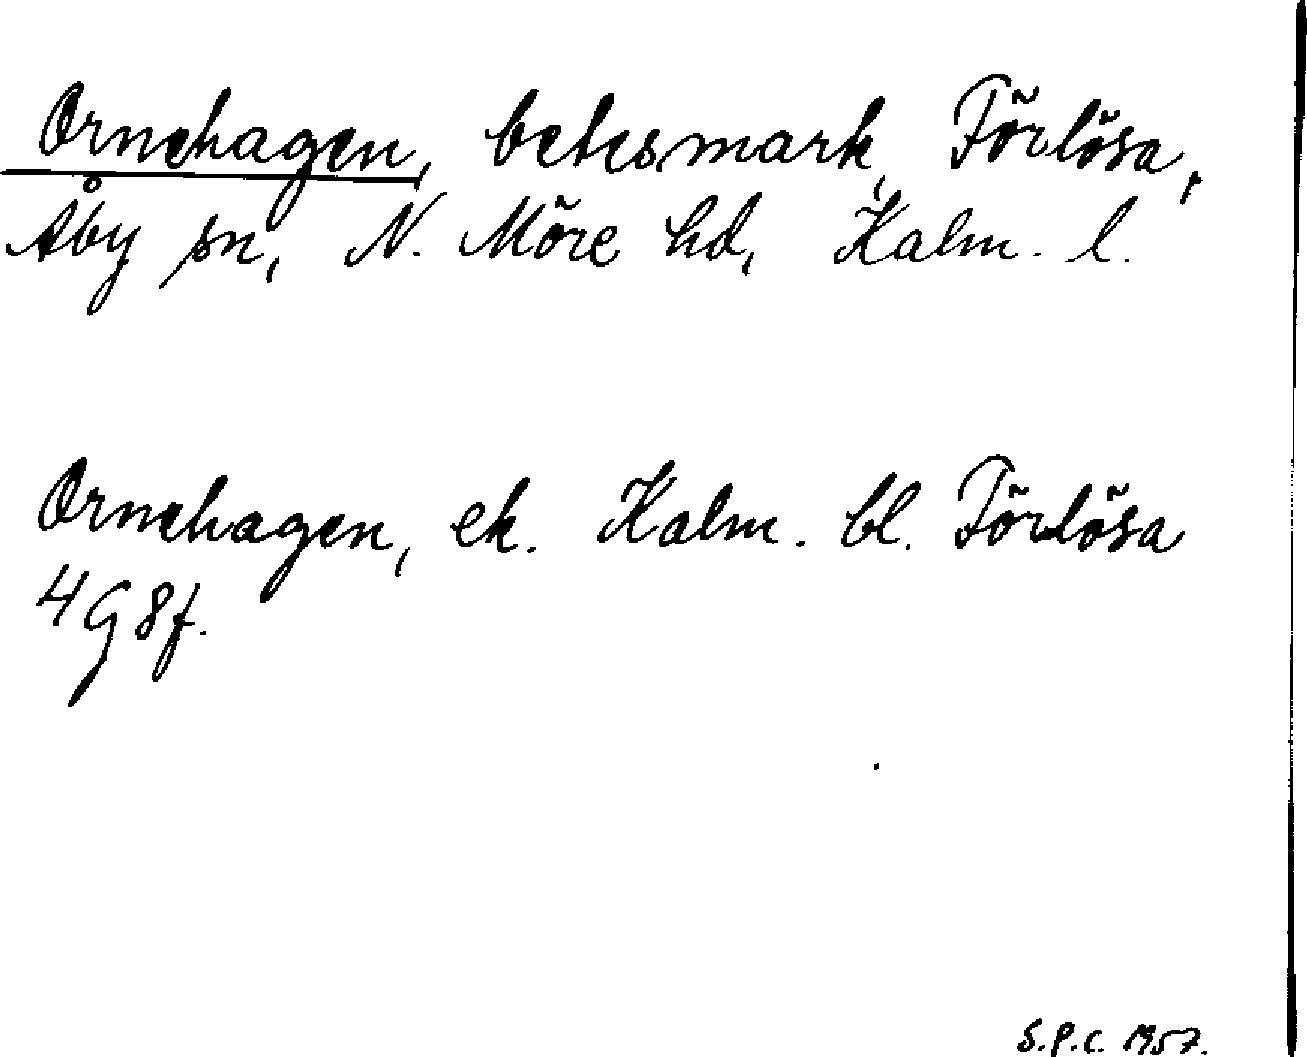 Ornehagen, betesmark, Förlösa,
Åby sn, N. Möre hd, Kalm. l.
Ornehagen, ek. Kalm. bl. Förlösa
4G8f.
S.P.C. 1957.